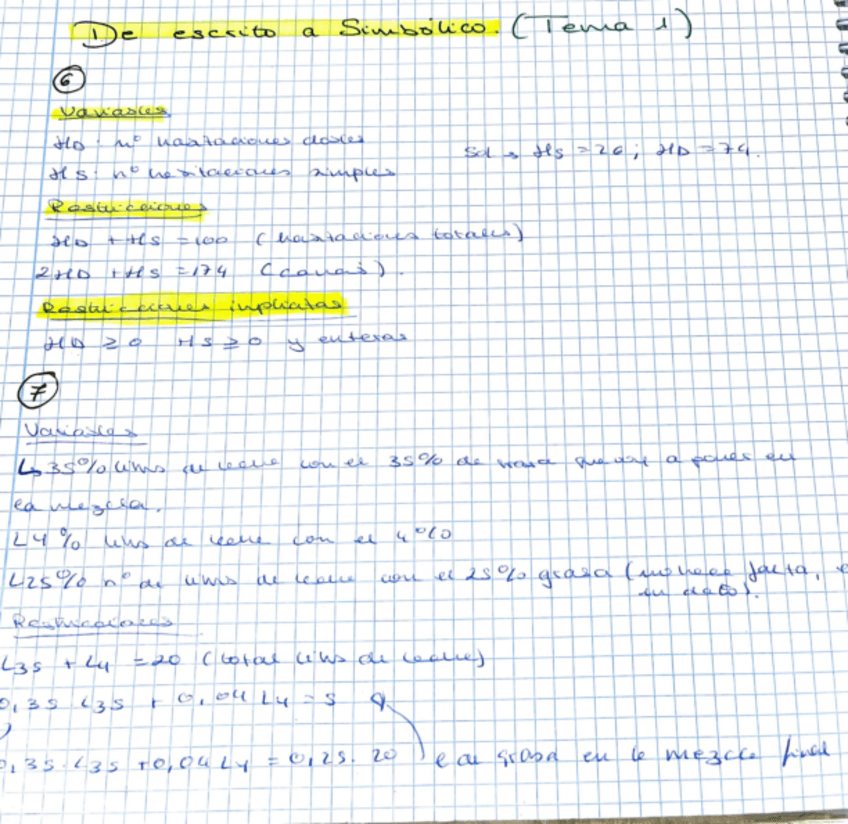 De escrito a Simbólico. (Tema 1)
6
Variables
HD: nº habitaciones dobles
Sol → HS = 26; HD = 74.
HS: nº habitaciones simples
Restricciones
HD + HS = 100 (habitaciones totales)
2HD + HS = 174 (camas).
Restricciones implícitas
HD ≥ 0 HS ≥ 0 y enteras
7
Variables
L35% litros de leche con el 35% de grasa que voy a poner en
la mezcla.
L4% litros de leche con el 4%
L25% nº de litros de leche con el 25% grasa (no hace falta, es
un dato).
Restricciones
L35 + L4 = 20 (total litros de leche)
0,35 L35 + 0,04 L4 = 5
0,35·L35 + 0,04 L4 = 0,25·20 de grasa en la mezcla final